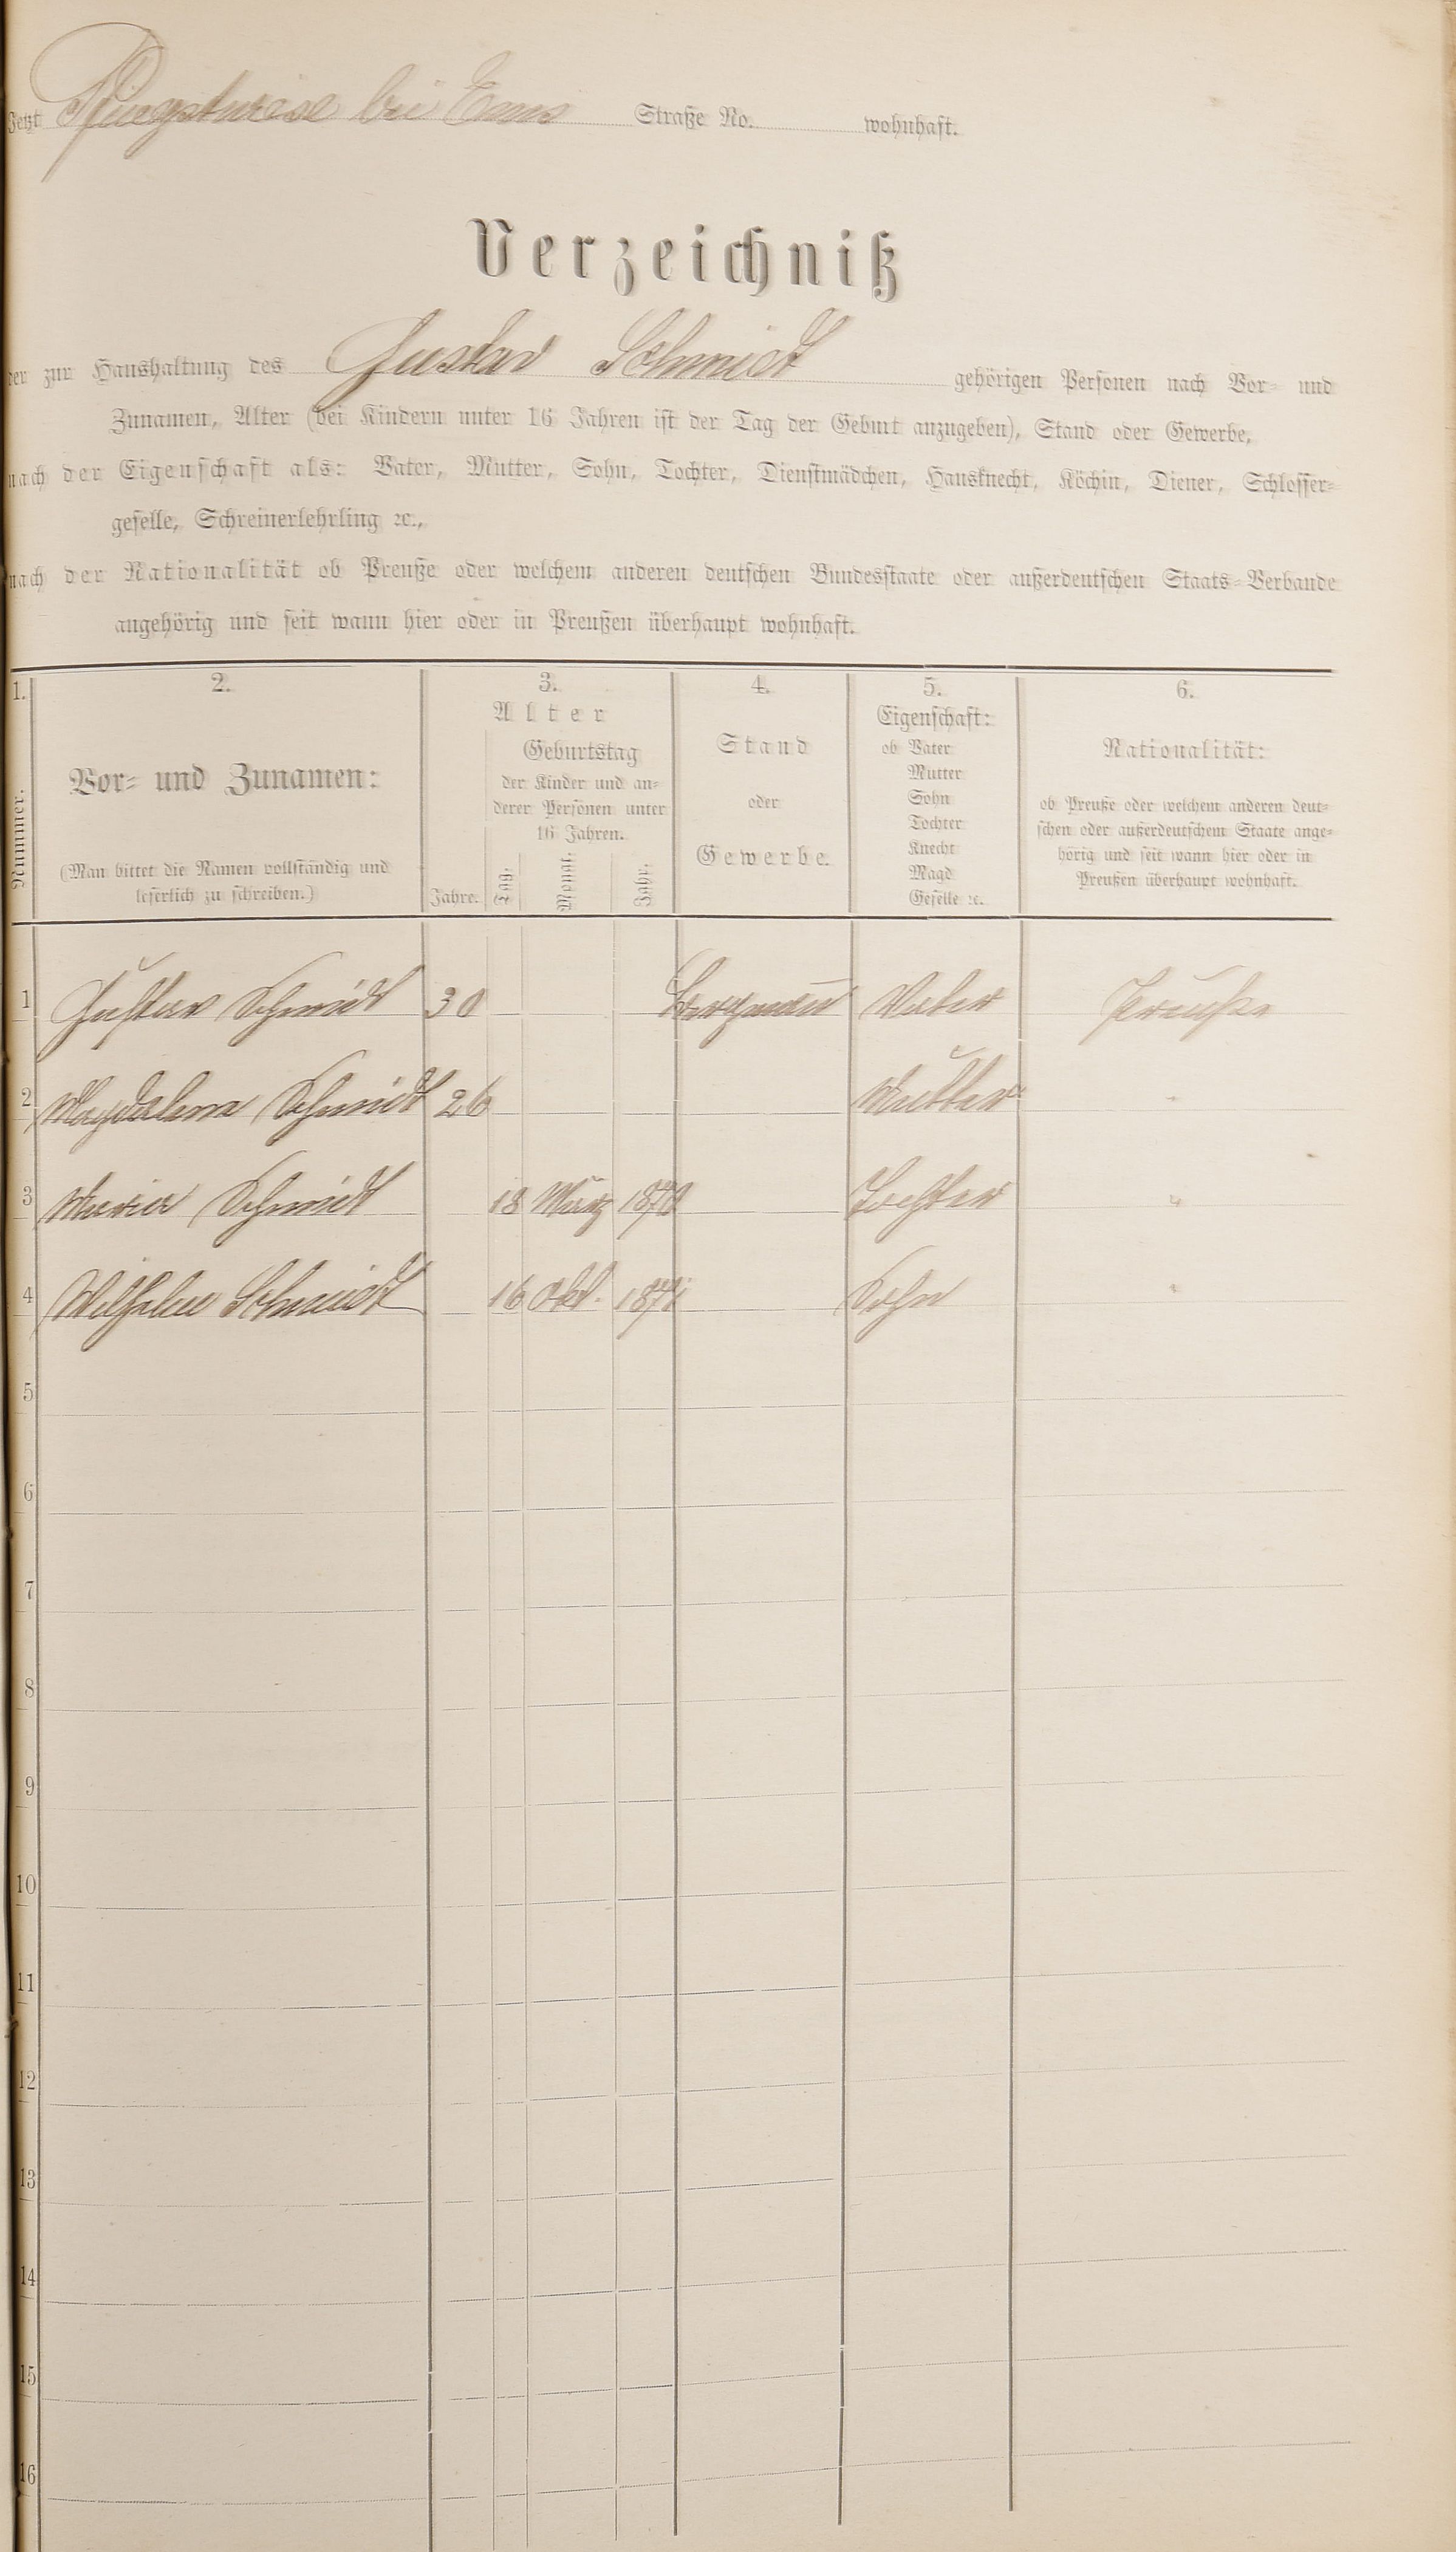 Jetzt Pfingstwiese bei Ems Straße No. wohnhaft.
Verzeichniß
der zur Haushaltung des Gustav Schmidt gehörigen Personen nach Vor- und
Zunamen, Alter (bei Kindern unter 16 Jahren ist der Tag der Geburt anzugeben), Stand oder Gewerbe,
nach der Eigenschaft als: Vater, Mutter, Sohn, Tochter, Dienstmädchen, Hausknecht, Köchin, Diener, Schlosser-
geselle, Schreinerlehrling ꝛc.,
nach der Nationalität ob Preuße oder welchem anderen deutschen Bundesstaate oder außerdeutschen Staats-Verbande
angehörig und seit wann hier oder in Preußen überhaupt wohnhaft.
1. 2. 3. 4. 5. 6.
Nummer.
Vor- und Zunamen:
(Man bittet die Namen vollständig und
leserlich zu schreiben.)
Alter
Geburtstag
der Kinder und an-
derer Personen unter
16 Jahren.
Jahre. Tag. Monat. Jahr.
Stand
oder
Gewerbe.
Eigenschaft:
ob Vater
Mutter
Sohn
Tochter
Knecht
Magd
Geselle ꝛc.
Nationalität:
ob Preuße oder welchem anderen deut-
schen oder außerdeutschem Staate ange-
hörig und seit wann hier oder in
Preußen überhaupt wohnhaft.
1 Gustav Schmidt 30 Bergmann Vater Preuße
2 Magdalena Schmidt 26 Mutter "
3 Maria Schmidt 18 März Tochter "
4 Wilhelm Schmidt 16 Okt. Sohn "
5
6
7
8
9
10
11
12
13
14
15
16